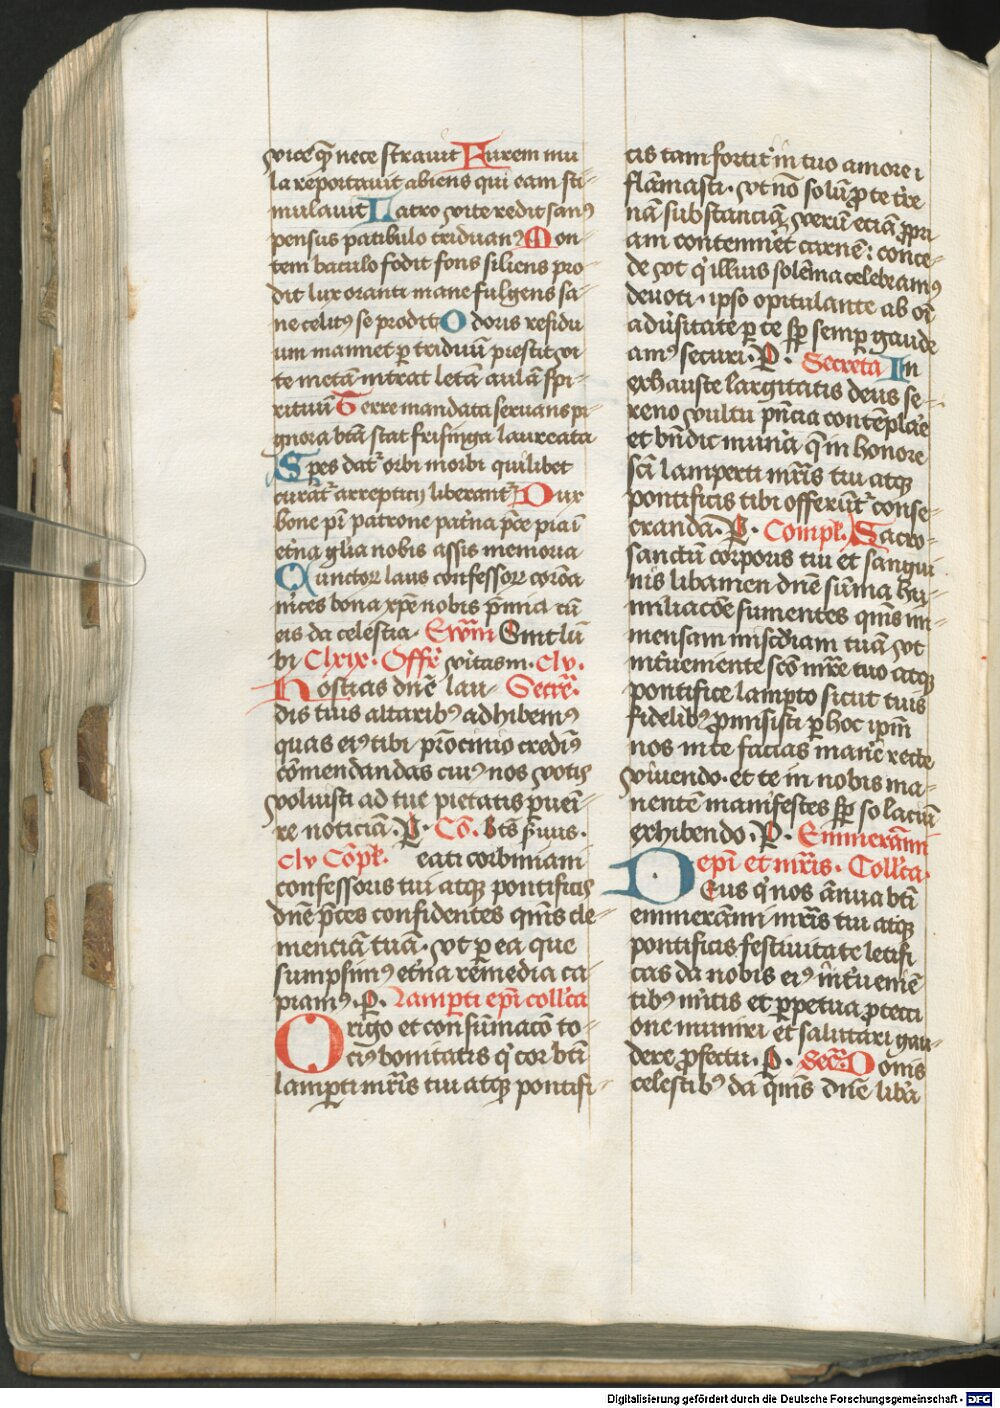 vice q̄ nece stravit Furem mu
la reportavit abiens qui eam sti
mulavit Latro vite redit sanꝰ
pensus patibulo triduanꝰ Mon
tem baculo fodit fons siliens pro
dit lux oranti mane fulgens sa
ne celitꝰ se prodit Odoris residu
um mannet ꝑ triduū prestit vi
te metā intrat letā aulā spi
rituū Terre mandata seruans pi
gnora btā stat frisinga laureata
Spes dat᷑ orbi morbi quilibet
curāt᷑ arrepticij liberant᷑ Dux
bone pr̄ patrone pat̄na p̄ce pia ī
et̄na gl̄ia nobis assis memoria
Cunctoꝝ laus confessoꝝ corōa
nites bona xpē nobis p̄mia cū
eis da celestia. Ewm̄ Sint lū
bi Clxix. Offr̄ vitas m. clv.
Hostias dn̄e lau Secre᷑.
dis tuis altaribꝰ adhibemꝰ
quas eiꝰ tibi pr̄ocinio credimꝰ
cōmendandas cuiꝰ nos votis
voluisti ad tue pietatis ꝑueī
re noticiā. P. Cō. bt̄s s̄uus.
clv Cōpl̄. eati corbiniani
confessoris tui atqꝫ pontificis
dn̄e p̄ces confidentes qm̄s cle
menciā tuā. vt ꝑ ea que
sumpsimꝰ et̄na remedia ca
piamꝰ. P. Lamꝑti ep̄i coll̄ca
Origo et consūmacō to
ciꝰ bonitatis q' cor bt̄i
lamꝑti mr̄is tui atqꝫ pontifi
cis tam fortit᷑ in tuo amore i
flāmasti. vt nō solū ꝓ te t̄re
nā substanciā verū eciā ꝓpri
am contemn̄et carnē: conce
de vt q' illius solēnia celebramꝰ
deuoti. ipso opitulante ab oī
adūsitate ꝑ te sꝑ semꝑ gaude
amꝰ securi. P. Secreta In
exhauste largitatis deus se
reno vultu pn̄cia contēplare
et bn̄dic mun̄a q̄ in honore
sc̄i lamperti mr̄is tui atqꝫ
pontificis tibi offerūt᷑ conse
cranda. P. Compl̄. Sacro
sanctū corporis tui et sangui
nis libamen dn̄e sūma hu
miliacōe sumentes qm̄s im
mensam mis̄cdiam tuā vt
int̄ueniente sc̄o mr̄e tuo atqꝫ
pontifice lampto sicut tuis
fidelibꝰ ꝓmisisti ꝑ hoc ip̄m
nos in te facias man̄e recte
viuendo. et te in nobis ma
nentē manifestes sꝑ solaciū
exhibendo. P. Emmerāmi
ep̄i et mr̄is. Coll̄ca.
Deus q' nos ānua bt̄i
emmerāmi mr̄is tui atqꝫ
pontificis festiuitate letifi
cas da nobis eiꝰ int̄ueniē
tibꝰ mītis et ꝑpetua ꝓtecti
one muniri et salutari gau
dere ꝓfectu. P. Secr̄. Donis
celestibꝰ da qm̄s dn̄e lib̄a
Digitalisierung gefördert durch die Deutsche Forschungsgemeinschaft - DFG